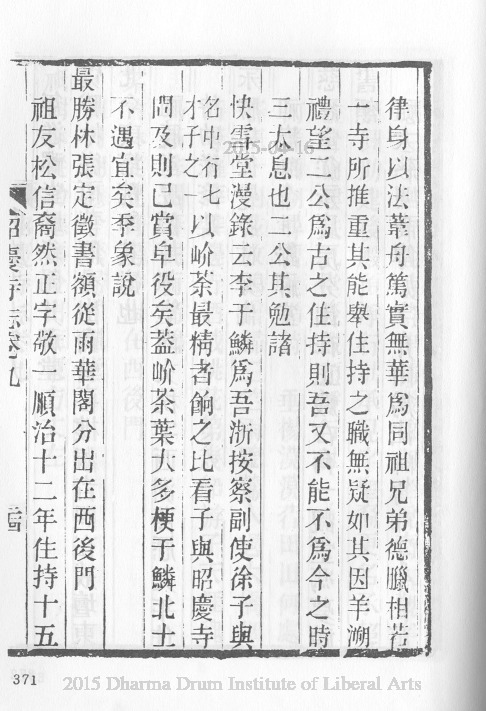 律身以法葦舟篤實無華爲同祖兄弟德臘相若
一寺所推重其能舉住持之職無疑如其因羊溯
禮望二公爲古之住持則吾又不能不爲今之時
三太息也二公其勉諸
快雪堂漫錄云李于鱗爲吾浙按察副使徐子與
名中行七
才子之一
以岕茶最精者餉之比看子與昭慶寺
問及則已賞皁役矣葢岕茶葉大多梗于鱗北士
不遇宜矣季象說
最勝林張定徵書額從雨華閣分出在西後門
祖友松信裔然正字敬一順治十二年住持十五
昭慶寺志卷九
371
2015-04-16
2015 Dharma Drum Institute of Liberal Arts